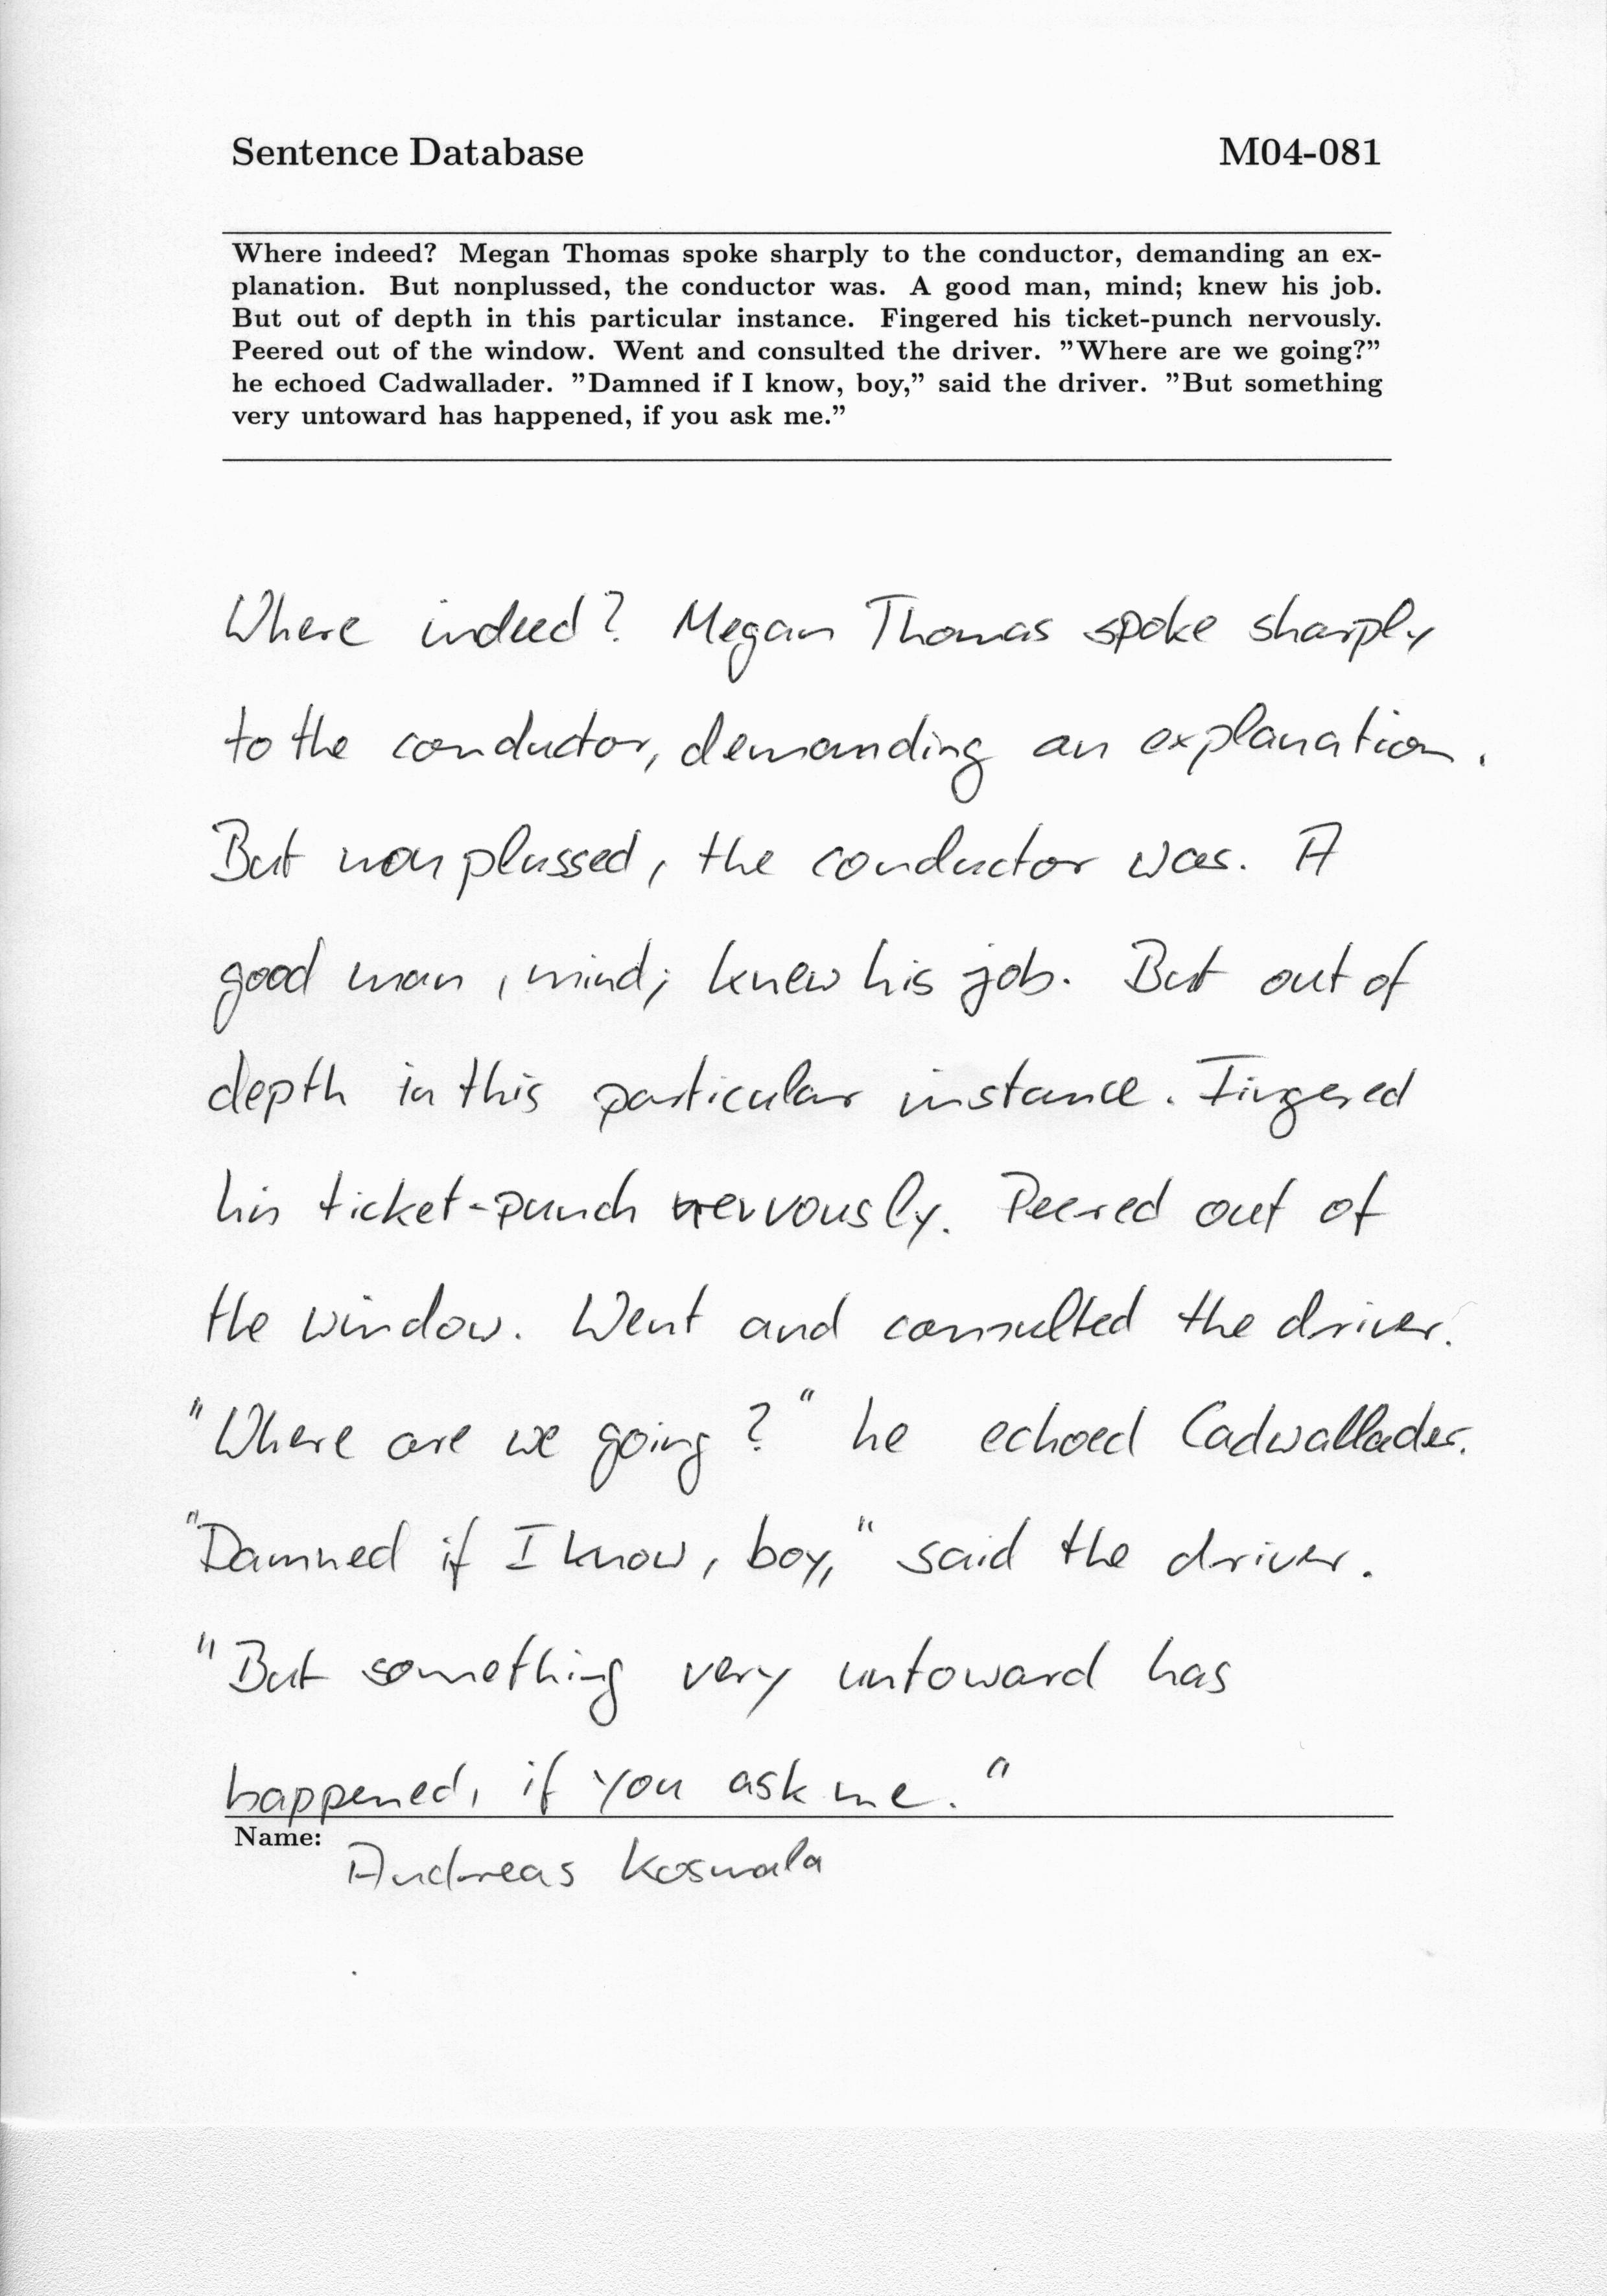 Sentence Database M04-081
Where indeed? Megan Thomas spoke sharply to the conductor, demanding an ex-
planation. But nonplussed, the conductor was. A good man, mind; knew his job.
But out of depth in this particular instance. Fingered his ticket-punch nervously.
Peered out of the window. Went and consulted the driver. ”Where are we going?”
he echoed Cadwallader. ”Damned if I know, boy,” said the driver. ”But something
very untoward has happened, if you ask me.”
Where indeed? Megan Thomas spoke sharply
to the conductor, demanding an explanation.
But nonplussed, the conductor was. A
good man, mind; knew his job. But out of
depth in this particular instance. Fingered
his ticket-punch nervously. Peered out of
the window. Went and consulted the driver.
"Where are we going?" he echoed Cadwallader.
"Damned if I know, boy," said the driver.
"But something very untoward has
happened, if you ask me."
Name:
Andreas